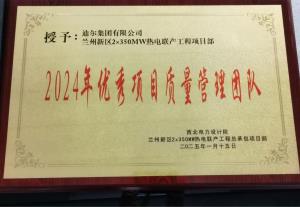 授予：迪尔集团有限公司
兰州新区2×350MW热电联产工程项目部
2024年优秀项目质量管理团队
西北电力设计院
兰州新区2×350MW热电联产工程总承包项目部
二〇二五年一月十五日